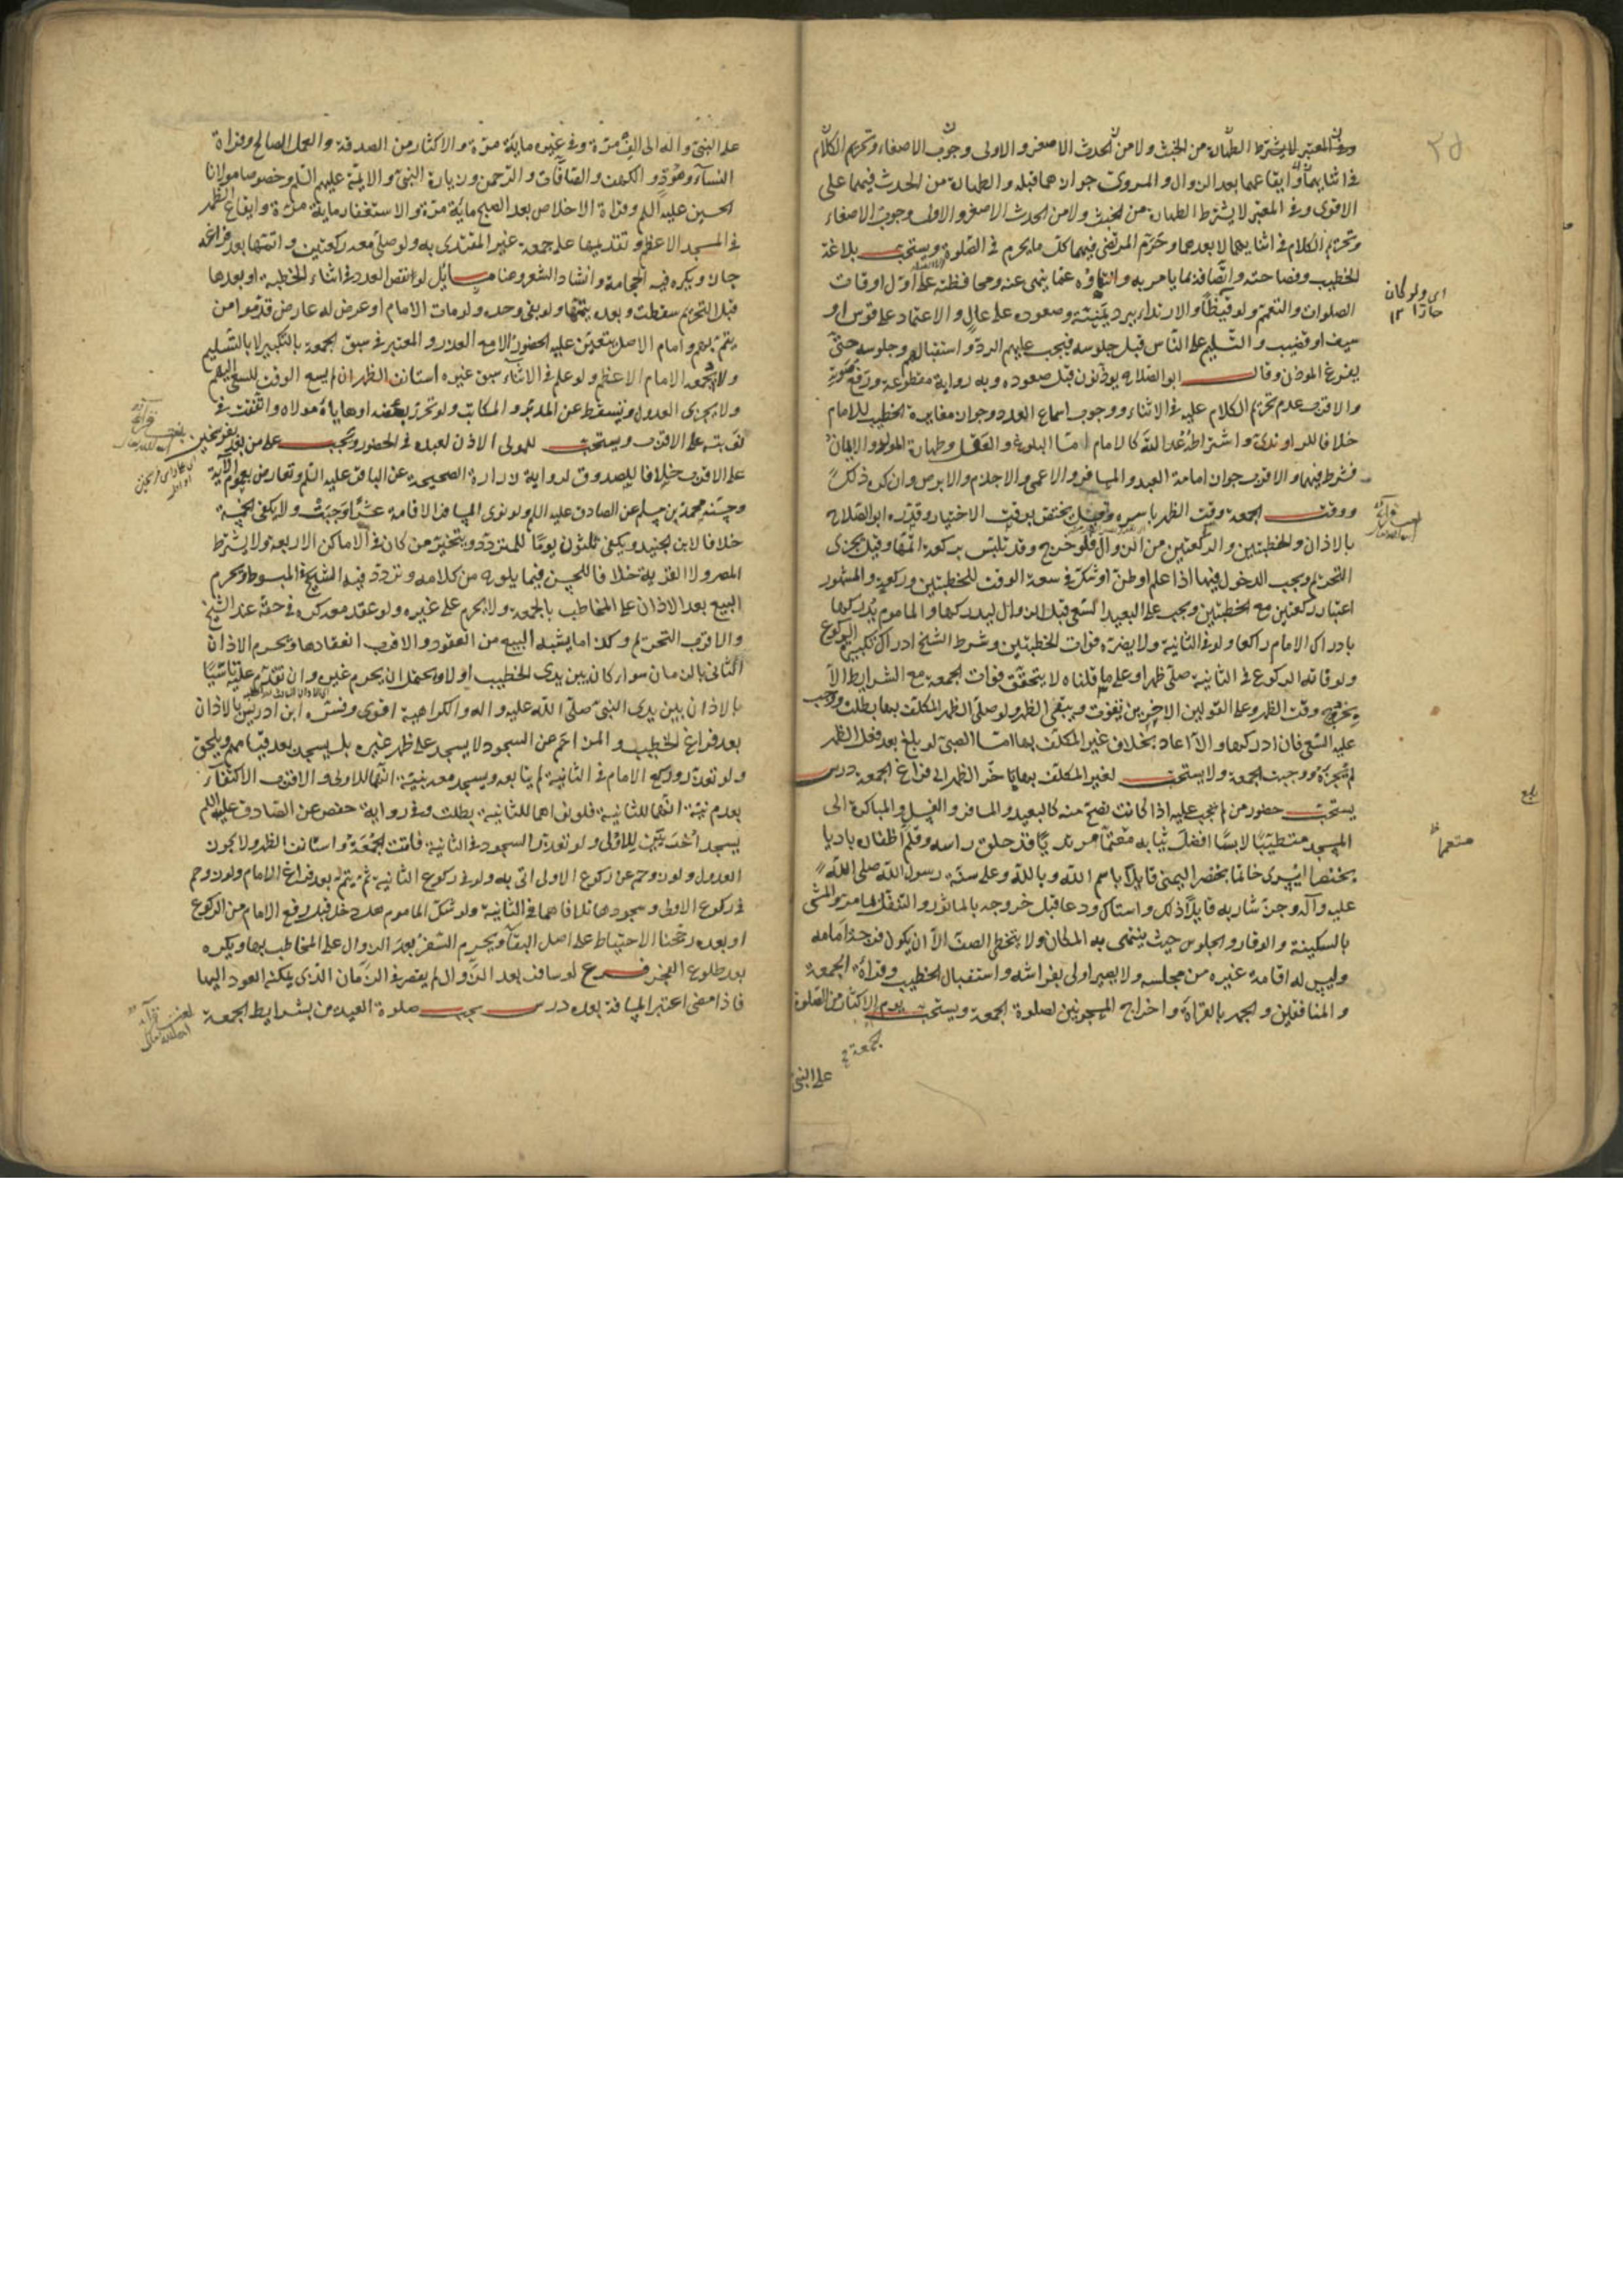 وفي المعتبر لا يشترط الطهارة من الخبث ولا من الحدث الاصغر والاولى وجوب الاصغاء وتحريم الكلام
في اثنائهما وايقاعهما بعد الزوال والمروى جوازهما قبله والطهارة من الحدث فيهما على
الاقوى وفي المعتبر لا يشترط الطهارة من الخبث ولا من الحدث الاصغر والاولى وجوب الاصغاء
وتحريم الكلام في اثنائهما لا بعدهما وحرّم المرتضى فيهما كل ما يحرم في الصلوة ويستحب بلاغة
الخطيب وفصاحته واتصافه بما يامر به وانتهاؤه عما ينهى عنه ومحافظته على اول اوقات
الصلوات والتعمم ولو قيظا والارتداء ببرد يمنية وصعوده على عال والاعتماد على قوس او
سيف او قضيب والتسليم على الناس قبل جلوسه فيجب عليهم الرد واستقبالهم وجلوسه حتى
يفرغ المؤذن وقال ابو الصلاح يؤذنون قبل صعوده وبه رواية مقطوعة ورفع صوته
والاقرب عدم تحريم الكلام عليه في الاثناء ووجوب اسماع العدد وجواز مغايرة الخطيب للامام
خلافا للراوندى واشتراط عدالته كالامام اما البلوغ والعقل وطهارة المولد والايمان
فشرط فيهما والاقرب جواز امامة العبد والمسافر والاعمى والاجذم والابرص وان كره ذلك
ووقت الجمعة وقت الظهر باسره وقيل يختص بوقت الاختيار وقدره ابو الصلاح
بالاذان والخطبتين والركعتين من الزوال فلو خرج وقد تلبس بركعة اتمها وقيل يجزى
التحريم ويجب الدخول فيها اذا علم او ظن او شك في سعة الوقت للخطبتين وركعة والمشهور
اعتبار ركعتين مع الخطبتين ويجب على البعيد السعى قبل الزوال ليدركها والماموم يدركها
بادراك الامام راكعا ولو في الثانية ولا يضره فوات الخطبتين وشرط الشيخ ادراك تكبير الركوع
ولو فاته الركوع في الثانية صلى ظهرا وعلى ما قلناه لا يتحقق فوات الجمعة مع الشرايط الا
بخروج وقت الظهر وعلى القولين الاخيرين يفوت ويبقى الظهر ولو صلى الظهر المكلف بها بطلت ووجب
عليه السعى فان ادركها والا اعاد بخلاف غير المكلف بها اما الصبى لو بلغ بعد فعل الظهر
لم تجزه ووجبت الجمعة ولا يستحب لغير المكلف بها تاخير الظهر الى فراغ الجمعة درس
يستحب حضور من لم تجب عليه اذا كانت تصح منه كالبعيد والمسافر والغسل والمباكرة الى
المسجد متطيبا لابسا افضل ثيابه متعمما مرتديا قد حلق راسه وقلم اظفاره باديا
بخنصر اليسرى خاتما بخنصر اليمنى قايلا باسم الله وبالله وعلى سنة رسول الله صلى الله
عليه وآله وجز شاربه قايلا ذلك واستاك ودعا قبل خروجه بالماثور والتنفل كما مر والمشى
بالسكينة والوقار والجلوس حيث ينتهى به المكان ولا يتخطى الصف الا ان يكون فرجة امامه
وليس له اقامة غيره من مجلسه ولا يصير اولى بفراشه واستقبال الخطيب وقراءة الجمعة
والمنافقين والجهر بالقراءة واخراج المسجونين لصلوة الجمعة ويستحب يوم الاكثار من الصلوة
جمعة
على النبى
اى ولو كان
حارا ١٢
متعمما
على النبى واله الى الف مرة وفي غيره ماية مرة والاكثار من الصدقة والعمل الصالح وقراءة
النساء وهود والكهف والصافات والرحمن وزيارة النبى والايمة عليهم السلم وخصوصا مولانا
الحسين عليه السلم وقراءة الاخلاص بعد الصبح ماية مرة والاستغفار ماية مرة وايقاع الظهر
في المسجد الاعظم وتقديمها على جمعة غير المقتدى به ولو صلى معه ركعتين واتمها بعد فراغه
جاز ويكره فيه الحجامة وانشاد الشعر وهنا مسائل لو انفض العدد في اثناء الخطبة او بعدها
قبل التحريم سقطت وبعده يتمها ولو بقى وحده ولو مات الامام او عرض له عارض قدموا من
يتم بهم وامام الاصل يتعين عليه الحضور الا مع العذر والمعتبر في سبق الجمعة بالتكبير لا بالتسليم
ولا بجمعة الامام الاعظم ولو علم في الاثناء سبق غيره استانف الظهر ان لم يسع الوقت للسعى اليهم
ولا يجزى العدول وتسقط عن المدبر والمكاتب ولو تحرر بعضه او هاياه مولاه واتفقت في
نوبته على الاقرب ويستحب للمولى الاذن لعبده في الحضور وتجب على من بعد بفرسخين
على الاقرب خلافا للصدوق لرواية زرارة الصحيحة عن الباقر عليه السلم وتعارض بعموم الآية
وحسنة محمد بن مسلم عن الصادق عليه السلم ولو نوى المسافر الاقامة عشرا وجبت ولا يكفى الخمسة
خلافا لابن الجنيد ويكفى ثلثون يوما للمتردد ويتخير من كان في الاماكن الاربعة ولا يشترط
المصر ولا القرية خلافا للحسن فيما يلوح من كلامه وتردد فيه الشيخ في المبسوط ويحرم
البيع بعد الاذان على المخاطب بالجمعة ولا يحرم على غيره ولو عقد معه كره في حقه عند الشيخ
والاقرب التحريم وكذا ما يشبه البيع من العقود والاقرب انعقادها ويحرم الاذان
الثانى بالزمان سواء كان بين يدى الخطيب اولا ويحتمل ان يحرم غيره وان تقدم عليه تاسيا
بالاذان بين يدى النبى صلى الله عليه واله والكراهية اقوى وفسره ابن ادريس بالاذان
بعد فراغ الخطيب والمزاحم عن السجود لا يسجد على ظهر غيره بل يسجد بعد قيامهم ويلحق
ولو تعذر وركع الامام في الثانية لم يتابعه ويسجد معه بنية انهما للاولى والاقرب الاكتفاء
بعدم نية انهما للثانية فلو نواهما للثانية بطلت وفي رواية حفص عن الصادق عليه السلم
يسجد اخريين للاولى ولو تعذر السجود في الثانية فاتت الجمعة واستانف الظهر ولا يجوز
العدول ولو زوحم عن ركوع الاولى اتى به ولو في ركوع الثانية ثم يتم بعد فراغ الامام ولو زوحم
في ركوع الاولى وسجودها تلافاهما في الثانية ولو شك الماموم هل دخل قبل رفع الامام من الركوع
او بعده رجحنا الاحتياط على اصل البقاء ويحرم السفر بعد الزوال على المخاطب بها ويكره
بعد طلوع الفجر فرع لو سافر بعد الزوال لم يقصر في الزمان الذى يمكنه العود اليها
فاذا مضى اعتبر المسافة بعده درس يجب صلوة العيدين بشرايط الجمعة